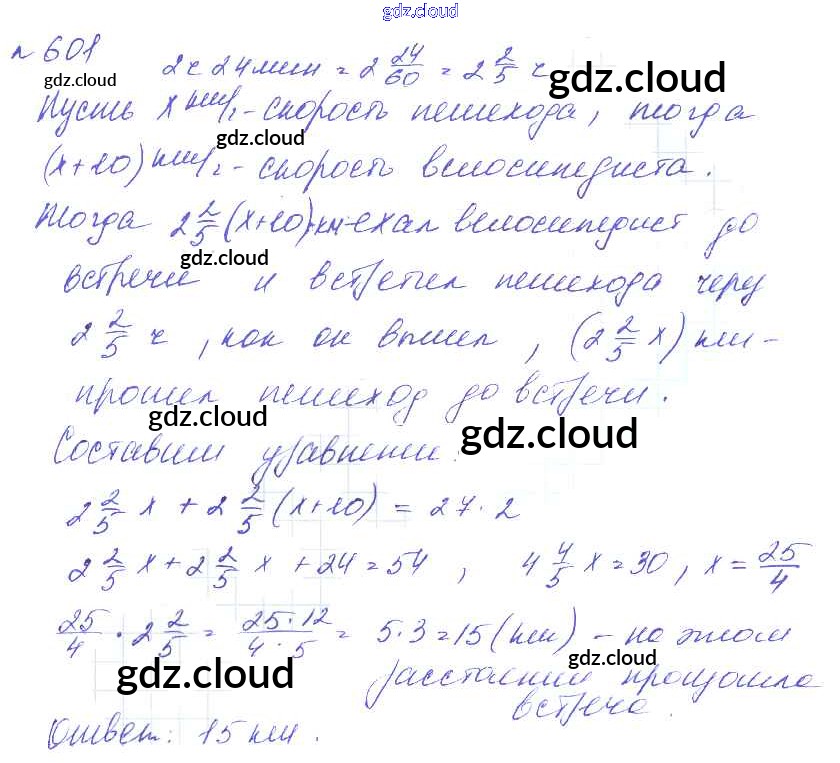 gdz.cloud
n 601
gdz.cloud
2 ч 24 мин = 2 24/60 = 2 2/5 ч
gdz.cloud
Пусть x км/ч - скорость пешехода, тогда
gdz.cloud
(x+10) км/ч - скорость велосипедиста.
Тогда 2 2/5 (x+10) км - ехал велосипедист до
gdz.cloud
встречи и встретил пешехода через
2 2/5 ч, как он вышел, (2 2/5 x) км -
прошел пешеход до встречи.
gdz.cloud
gdz.cloud
Составим уравнение:
2 2/5 x + 2 2/5 (x+10) = 27 · 2
2 2/5 x + 2 2/5 x + 24 = 54, 4 4/5 x = 30, x = 25/4
25/4 · 2 2/5 = 25·12/4·5 = 5·3 = 15 (км) - на этом
gdz.cloud
gdz.cloud
расстоянии произошла
встреча.
Ответ: 15 км.